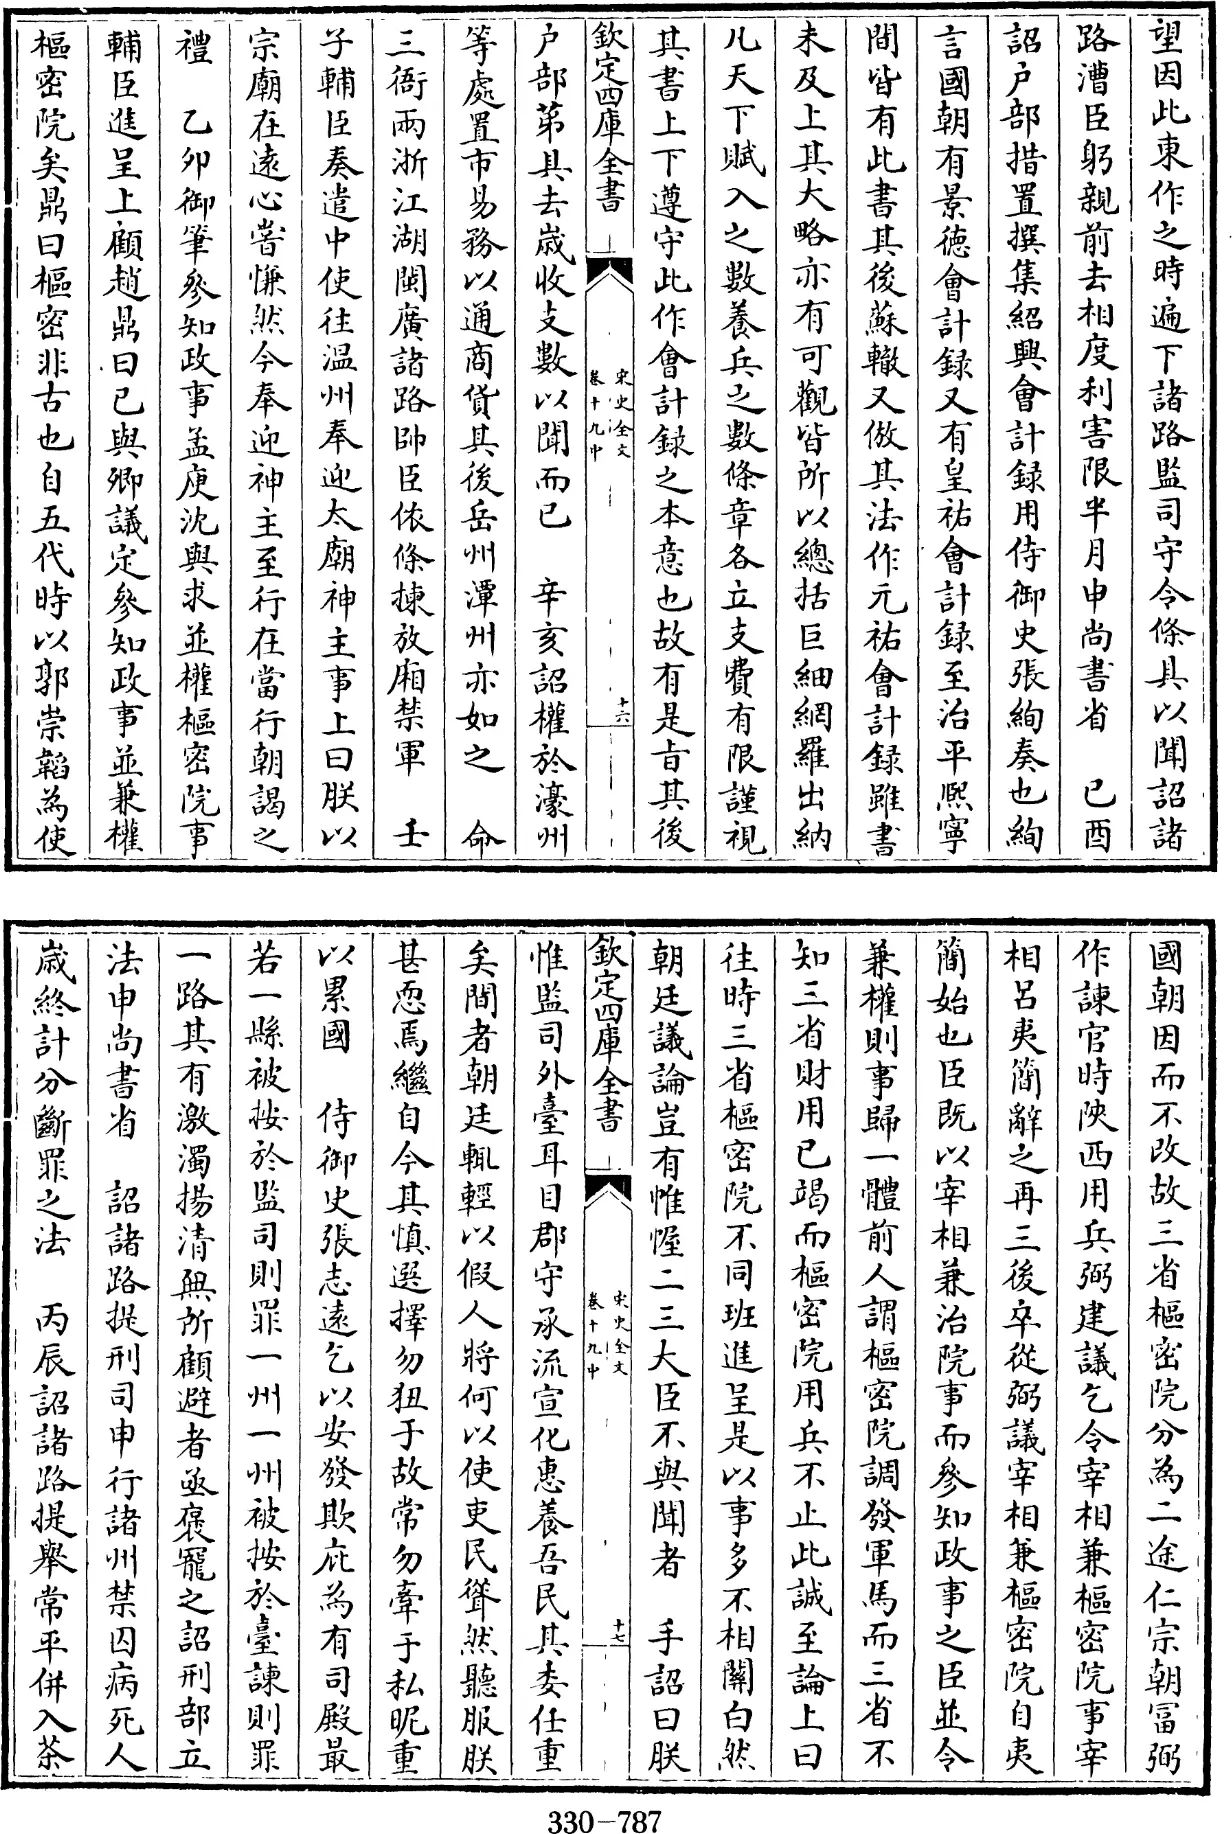 望因此東作之時遍下諸路監司守令條具以聞詔諸
路漕臣躬親前去相度利害限半月申尚書省　己酉
詔户部措置撰集紹興會計録用侍御史張絢奏也絢
言國朝有景德會計録又有皇祐會計録至治平熙寧
間皆有此書其後蘇轍又倣其法作元祐會計録雖書
未及上其大略亦有可觀皆所以總括巨細網羅出納
凡天下賦入之數養兵之數條章各立支費有限謹視
其書上下遵守此作會計録之本意也故有是㫖其後
欽定四庫全書
宋史全文
卷十九中
十六
户部第具去歲收支數以聞而已　辛亥詔權於濠州
等處置市易務以通商貨其後岳州潭州亦如之　命
三衙兩浙江湖閩廣諸路帥臣依條揀放廂禁軍　壬
子輔臣奏遣中使往温州奉迎太廟神主事上曰朕以
宗廟在遠心嘗慊然今奉迎神主至行在當行朝謁之
禮　乙卯御筆參知政事孟庾沈與求並權樞密院事
輔臣進呈上顧趙鼎曰已與卿議定參知政事並兼權
樞密院矣鼎曰樞密非古也自五代時以郭崇韜為使
國朝因而不改故三省樞密院分為二途仁宗朝富弼
作諫官時陜西用兵弼建議乞令宰相兼樞密院事宰
相吕夷簡辭之再三後卒從弼議宰相兼樞密院自夷
簡始也臣既以宰相兼治院事而參知政事之臣並令
兼權則事歸一體前人謂樞密院調發軍馬而三省不
知三省財用已竭而樞密院用兵不止此誠至論上曰
往時三省樞密院不同班進呈是以事多不相關白然
朝廷議論豈有惟幄二三大臣不與聞者　手詔曰朕
欽定四庫全書
宋史全文
卷十九中
十七
惟監司外臺耳目郡守承流宣化惠養吾民其委任重
矣間者朝廷輒輕以假人將何以使吏民聳然聽服朕
甚恧焉繼自今其慎選擇勿狃于故常勿牽于私昵重
以累國　侍御史張志遠乞以安發欺庇為有司殿最
若一縣被按於監司則罪一州一州被按於臺諫則罪
一路其有激濁揚清無所顧避者亟褒寵之詔刑部立
法申尚書省　詔諸路提刑司申行諸州禁囚病死人
歲終計分斷罪之法　丙辰詔諸路提舉常平併入茶
330-787